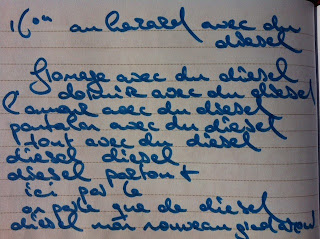 au hasard avec du
diesel
Homage avec du diesel
dormir avec du diesel
l'amour avec du diesel
pantalon avec du diesel
tout avec du diesel
diesel diesel
diesel partout
ici par le
on parle que de diesel
diesel mon nouveau